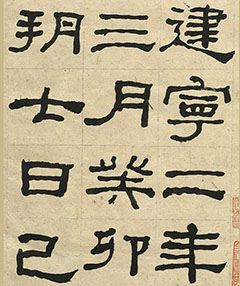 建寧二年
三月癸卯
朔七日己